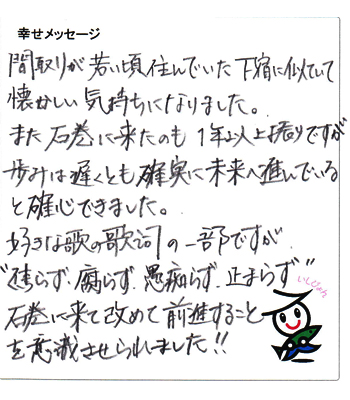 幸せメッセージ
間取りが若い頃住んでいた下宿に似ていて
懐かしい気持ちになりました。
また石巻に来たのも1年以上振りですが
歩みは遅くとも確実に未来へ進んでいる
と確心できました。
好きな歌の歌詞の一部ですが
"焦らず・腐らず・愚痴らず・止まらず"
石巻に来て改めて前進すること
を意識させられました!!